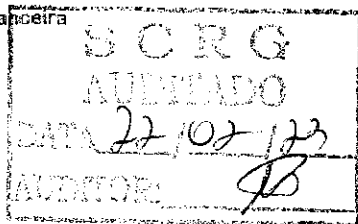 anceira
SCRG
AUDITADO
DATA 22/02/23
AUDITOR: